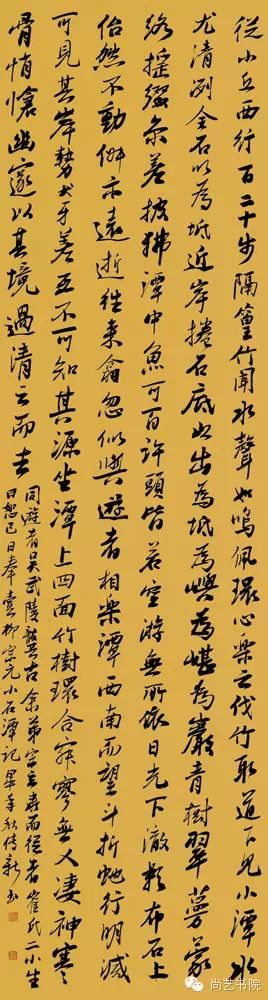 從小丘西行百二十步隔篁竹聞水聲如鳴佩環心樂之伐竹取道下見小潭水
尤清冽全石以為坻近岸捲石底以出為坻為嶼為嵁為巖青樹翠蔓蒙
絡搖綴參差披拂潭中魚可百許頭皆若空游無所依日光下澈影布石上
佁然不動俶爾遠逝往來翕忽似與遊者相樂潭西南而望斗折蛇行明滅
可見其岸勢犬牙差互不可知其源坐潭上四面竹樹環合寂寥無人凄神寒
骨悄愴幽邃以其境過清之而去
同遊者吳武陵龔古余弟宗玄隸而從者崔氏二小生
曰恕己曰奉壹柳宗元小石潭記秋傳新書
尚艺书院